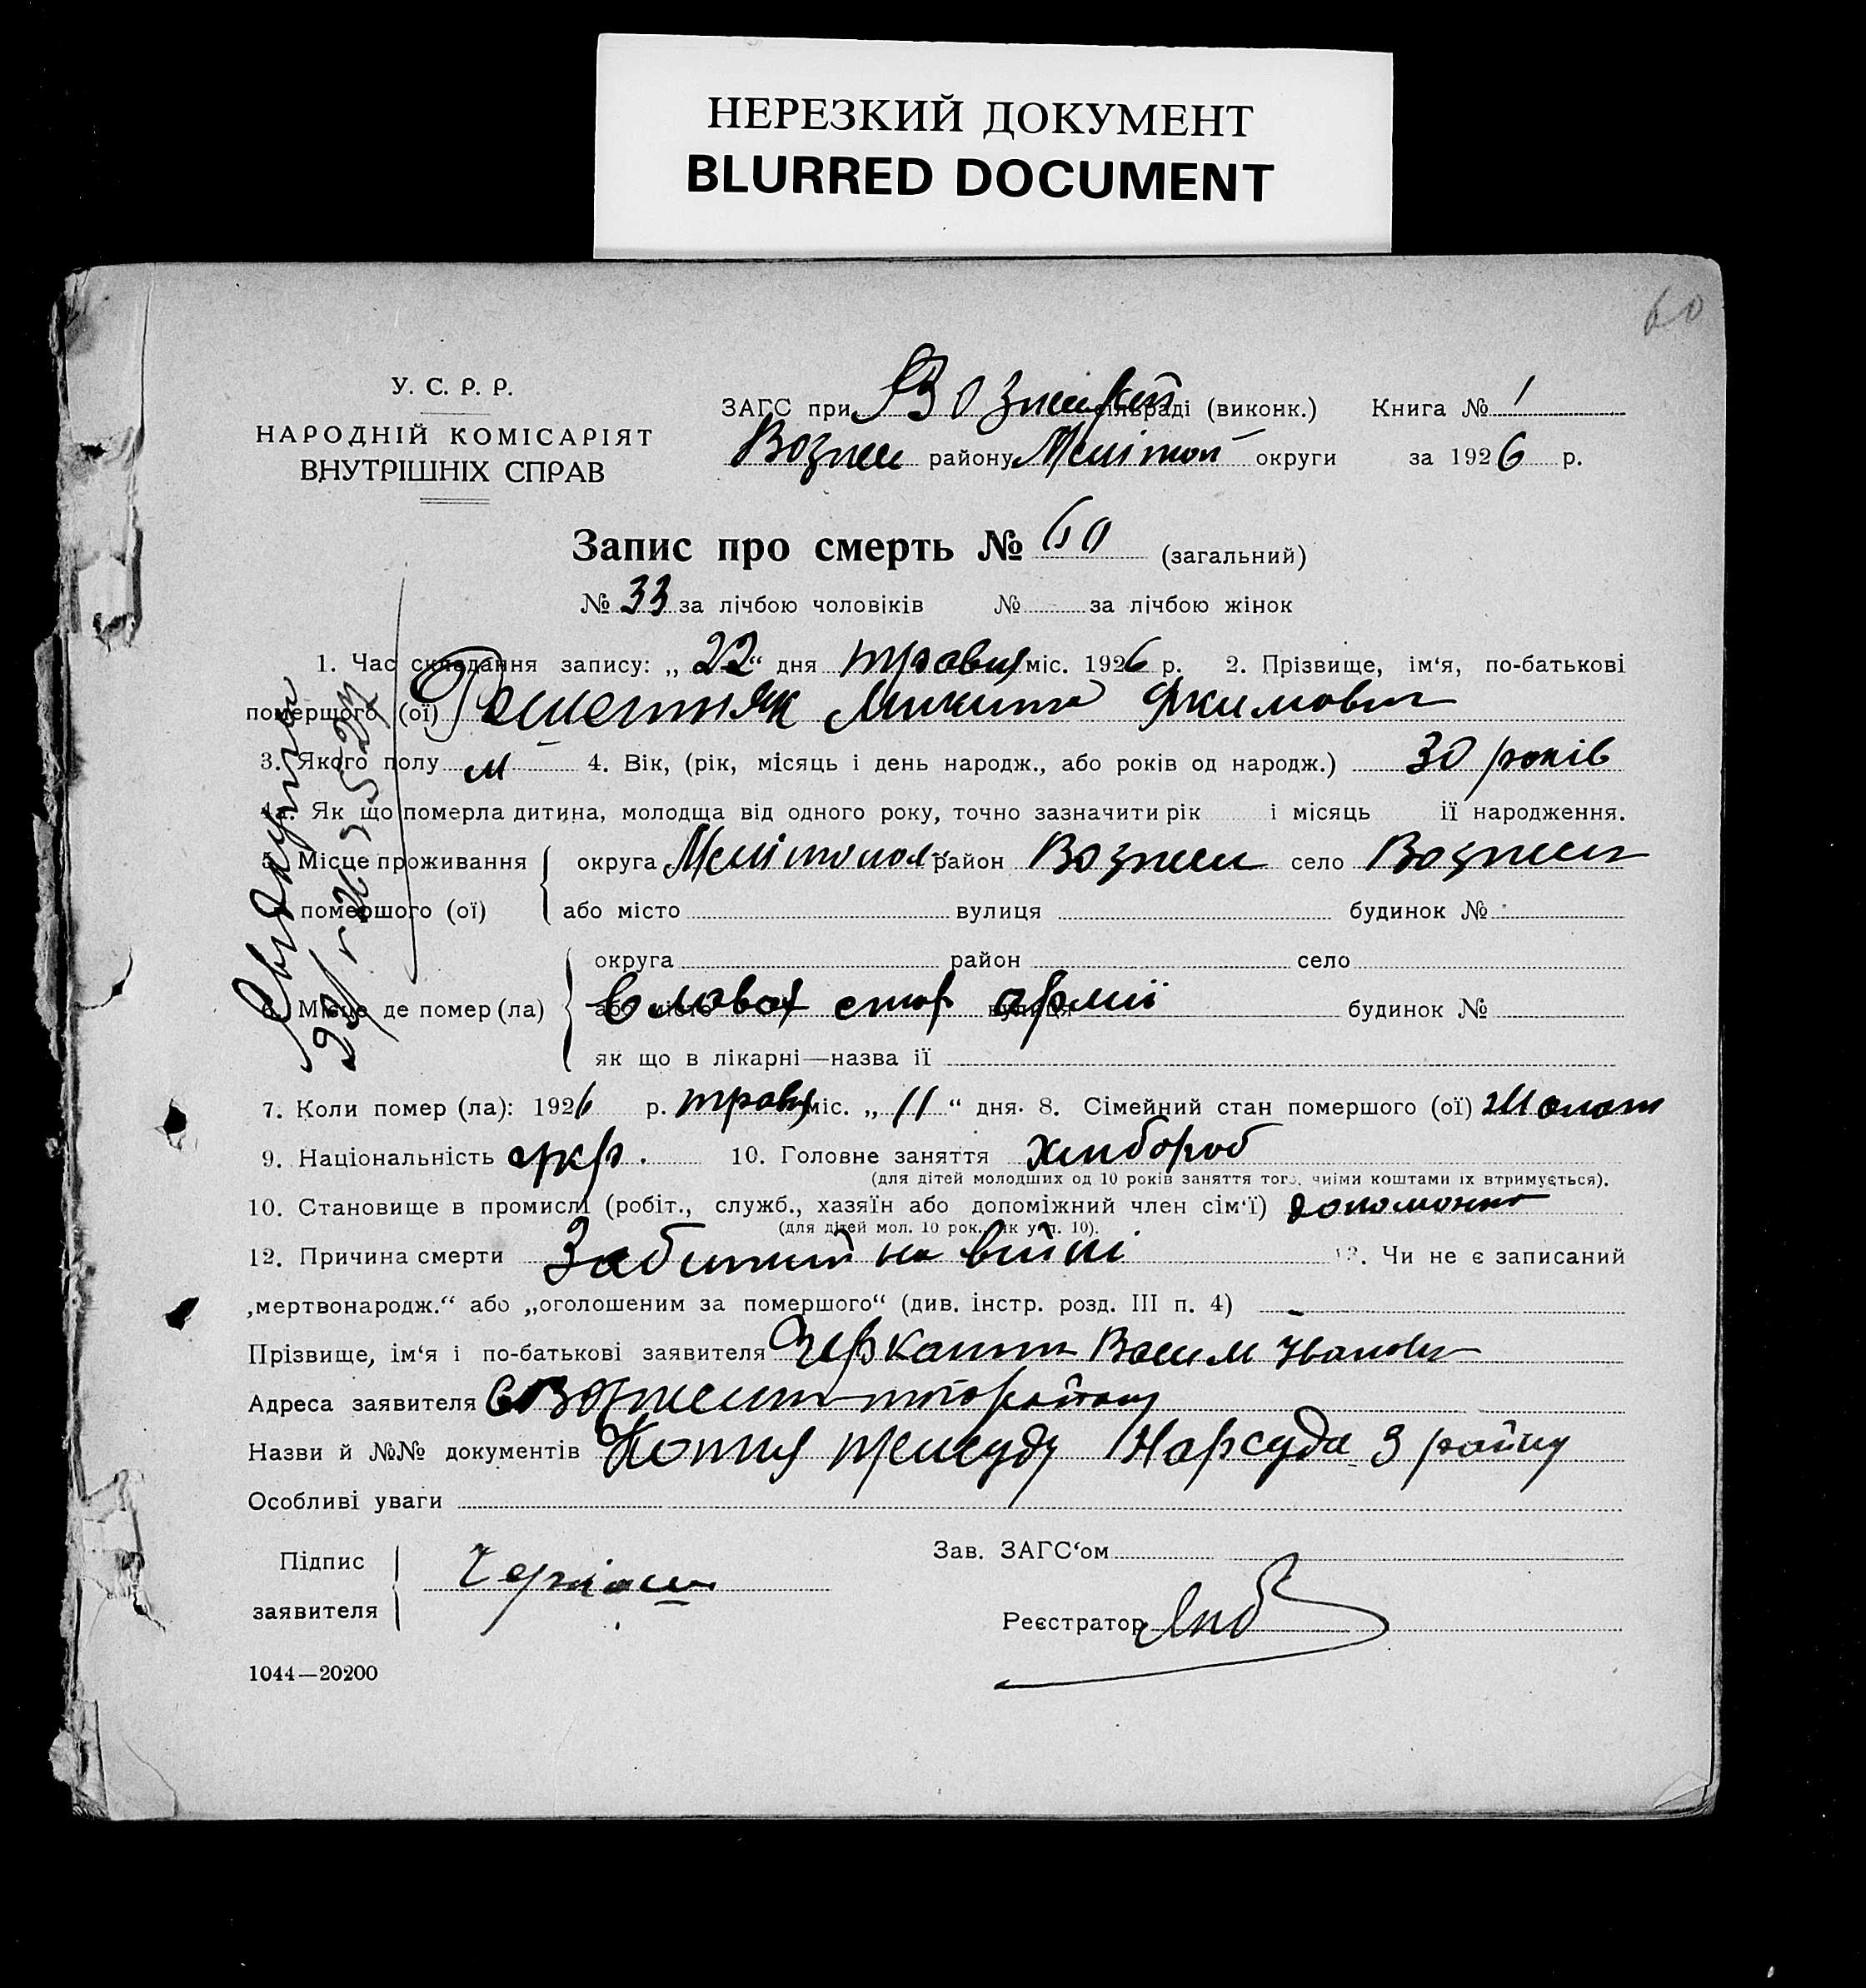 НЕРЕЗКИЙ ДОКУМЕНТ
BLURRED DOCUMENT
60
У. С. Р. Р.
НАРОДНІЙ КОМІСАРІЯТ
ВНУТРІШНІХ СПРАВ
ЗАГС при сільраді (виконк.) Книга № 1
Вознес району Меліпол округи за 1926 р.
Запис про смерть № 60 (загальний)
№ 33 за лічбою чоловіків № за лічбою жінок
1. Час складання запису: „22“ дня травня міс. 1926 р. 2. Прізвище, ім‘я, по-батькові
помершого (ої) Решетняк Микита Якимович
3. Якого полу м 4. Вік, (рік, місяць і день народж., або років од народж.) 30 років
4а. Як що померла дитина, молодща від одного року, точно зазначити рік і місяць її народження.
5. Місце проживання округа Мелітопол район Вознесен село Вознесен
помершого (ої) або місто вулиця будинок №
округа район село
6. Місце де помер (ла) або місто вулиця армії будинок №
як що в лікарні—назва її
7. Коли помер (ла): 1926 р. травня міс. „11“ дня. 8. Сімейний стан помершого (ої)
9. Національність укр. 10. Головне заняття хлібороб
(для дітей молодших од 10 років заняття того, чиїми коштами їх втримується).
10. Становище в промислі (робіт., служб., хазяїн або допоміжний член сім‘ї)
(для дітей мол. 10 рок., як у п. 10).
12. Причина смерти Забитий на війні 13. Чи не є записаний
„мертвонародж.“ або „оголошеним за помершого“ (див. інстр. розд. III п. 4) -
Прізвище, ім‘я і по-батькові заявителя Іванович
Адреса заявителя
Назви й №№ документів Копия Нарсуда 3 району
Особливі уваги
Підпис
заявителя
Зав. ЗАГС‘ом
Реєстратор
1044—20200